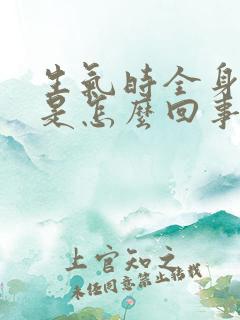 生氣時全身
是怎麼回事
上官知之
未經同意禁止轉載